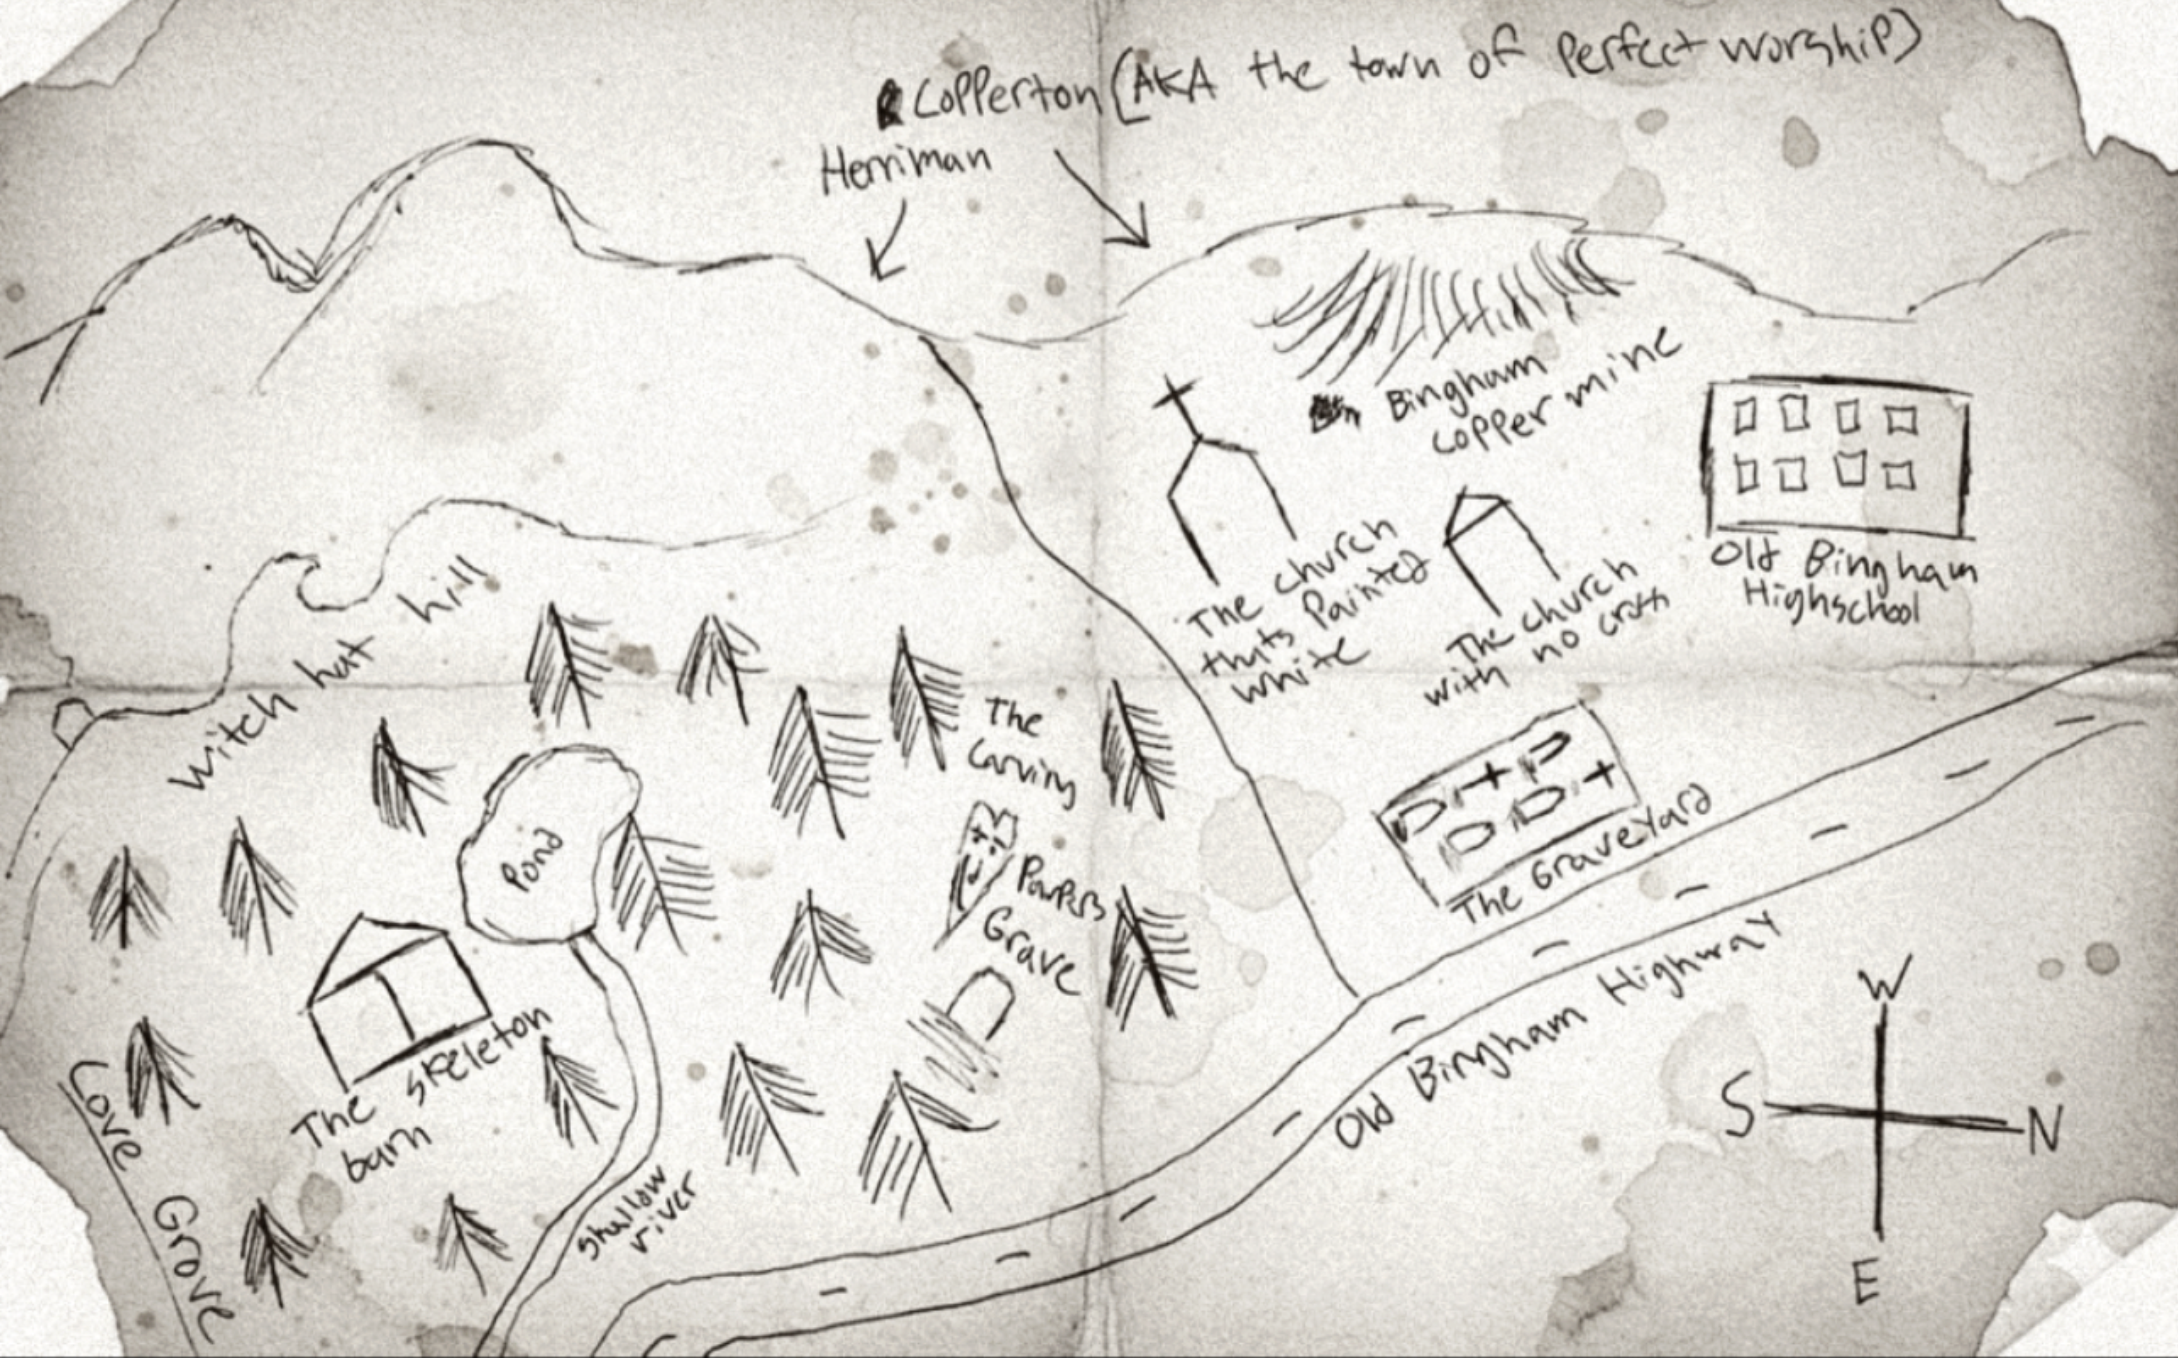 Copperton (AKA the town of perfect worship)
Herriman
Bingham
copper mine
Old Bingham
Highschool
The church
thats Painted
white
The church
with no cross
witch hat hill
The
Carving
Pond
Paupers
Grave
The Graveyard
Old Bingham Highway
The skeleton
barn
Love Grove
shallow
river
W
S
N
E